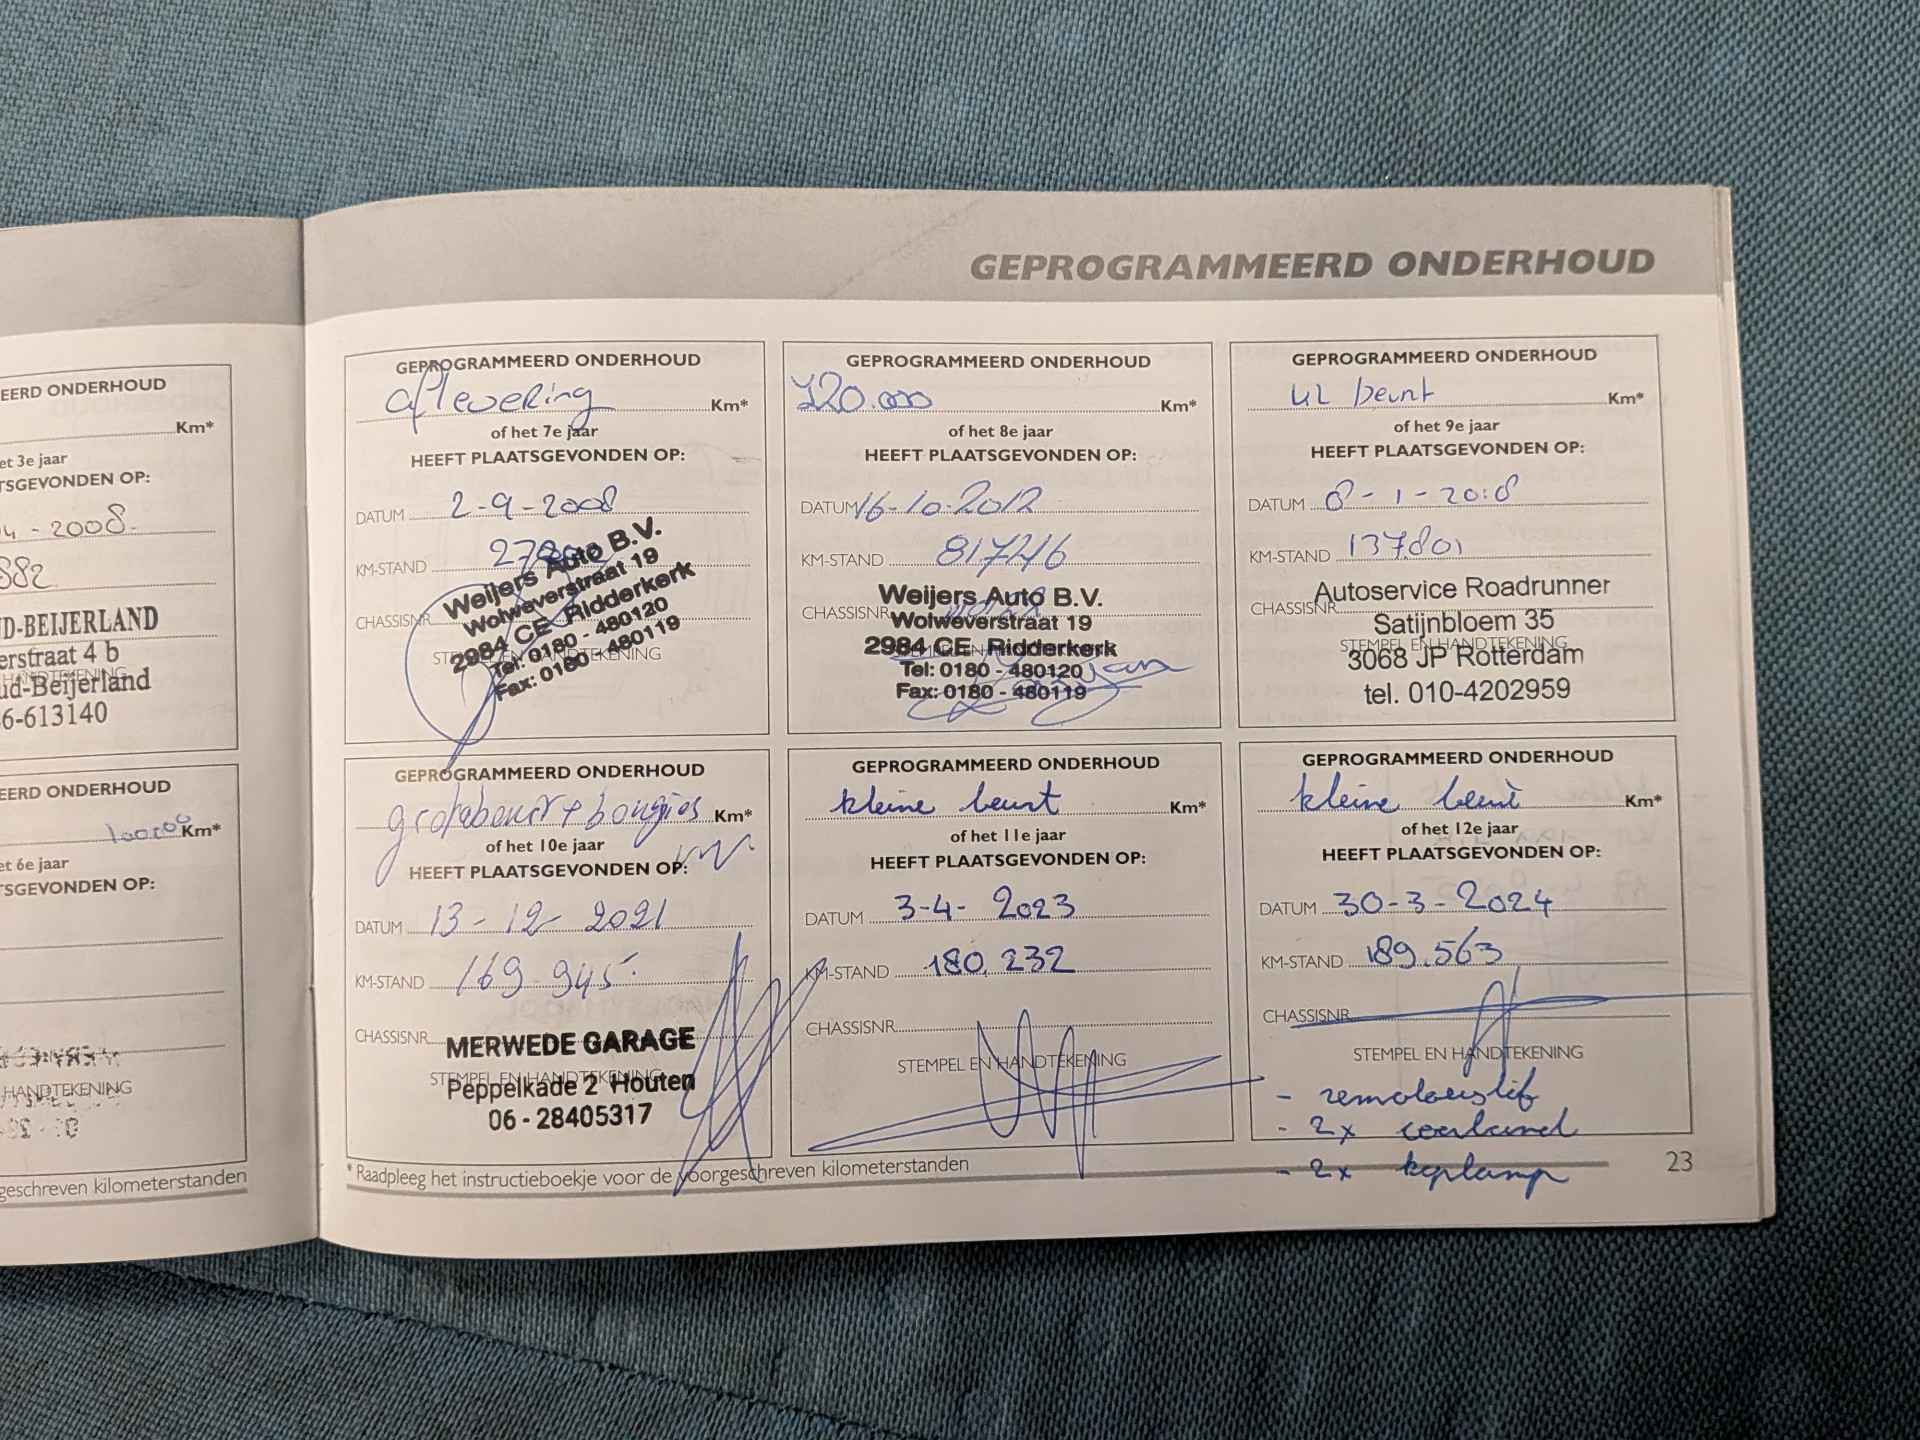 EERD ONDERHOUD
Km*
et 3e jaar
TSGEVONDEN OP:
4 - 2008-
882
UD-BEIJERLAND
erstraat 4 b
ud-Beijerland
6-613140
EERD ONDERHOUD
100.000 Km*
et 6e jaar
TSGEVONDEN OP:
HANDTEKENING
geschreven kilometerstanden
GEPROGRAMMEERD ONDERHOUD
GEPROGRAMMEERD ONDERHOUD
aflevering Km*
of het 7e jaar
HEEFT PLAATSGEVONDEN OP:
DATUM 2-9-2008
KM-STAND
CHASSISNR
STEMPEL EN HANDTEKENING
Weijers Auto B.V.
Wolweverstraat 19
2984 CE Ridderkerk
Tel: 0180 - 480120
Fax: 0180 - 480119
GEPROGRAMMEERD ONDERHOUD
120.000 Km*
of het 8e jaar
HEEFT PLAATSGEVONDEN OP:
DATUM 16-10-2012
KM-STAND 81746
CHASSISNR
STEMPEL EN HANDTEKENING
Weijers Auto B.V.
Wolweverstraat 19
2984 CE Ridderkerk
Tel: 0180 - 480120
Fax: 0180 - 480119
GEPROGRAMMEERD ONDERHOUD
beurt Km*
of het 9e jaar
HEEFT PLAATSGEVONDEN OP:
DATUM 8-1-2018
KM-STAND 137.801
CHASSISNR
STEMPEL EN HANDTEKENING
Autoservice Roadrunner
Satijnbloem 35
3068 JP Rotterdam
tel. 010-4202959
GEPROGRAMMEERD ONDERHOUD
grotebeurt + bougies Km*
of het 10e jaar
HEEFT PLAATSGEVONDEN OP:
DATUM 13-12-2021
KM-STAND 169.945.
CHASSISNR
STEMPEL EN HANDTEKENING
MERWEDE GARAGE
Peppelkade 2 Houten
06 - 28405317
GEPROGRAMMEERD ONDERHOUD
kleine beurt Km*
of het 11e jaar
HEEFT PLAATSGEVONDEN OP:
DATUM 3-4-2023
KM-STAND 180.232
CHASSISNR
STEMPEL EN HANDTEKENING
GEPROGRAMMEERD ONDERHOUD
kleine beurt Km*
of het 12e jaar
HEEFT PLAATSGEVONDEN OP:
DATUM 30-3-2024
KM-STAND 189.563
CHASSISNR
STEMPEL EN HANDTEKENING
- 2x
- 2x koplamp
* Raadpleeg het instructieboekje voor de voorgeschreven kilometerstanden
23